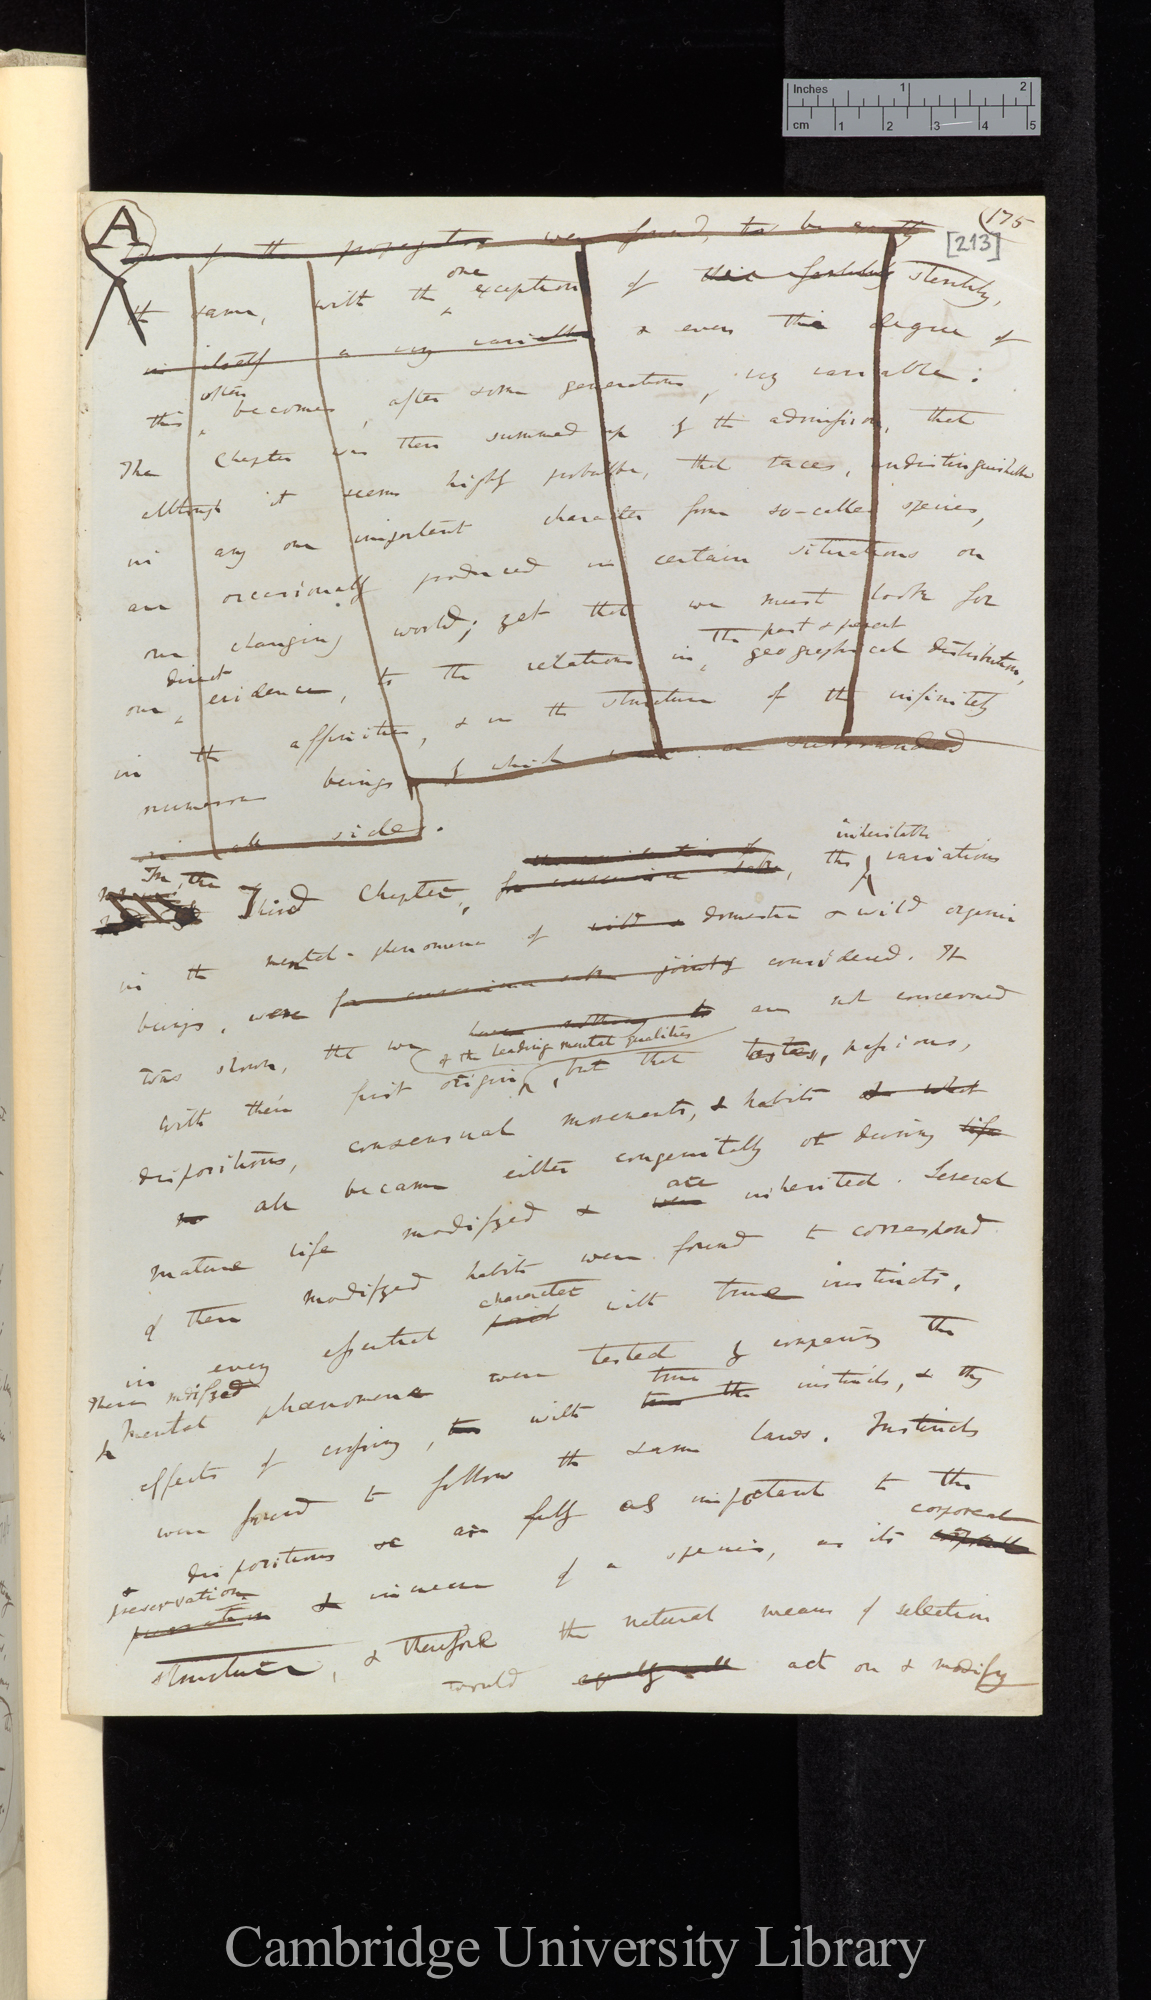 Inches 1 2
cm 1 2 3 4 5
A
175
[213]
of the propagation were found, to be exactly
the same, with the one exception of their fertility sterility,
in itself a very variable & even this degree of
this often becomes, after some generations, very variable:
The Chapter was then summed up by the admission, that
although it seems highly probable, that races, undistinguishable
in any one important character from so-called species,
are occasionally produced in certain situations on
our changing world; yet that we must look for
our direct evidence, to the relations in the past & present geographical distribution,
in the affinities, & in the structure of the infinitely
numerous beings by which we are surrounded
on all sides.
In the Third Chapter, for convenience sake, the inheritable variations
in the mental phenomena of wild & domestic & wild organic
beings, were for convenience sake jointly considered. It
was shown, that we have nothing to are not concerned
with their first origin of the leading mental qualities, but that tastes, passions,
dispositions, consensual movements, & habits & what
all became either congenitally or during life
mature life modifyed & were are inherited. Several
of these modifyed habits were found to correspond
in every essential point character with true instincts.
These modifyed Mental phenomena were tested by comparing the
effects of crossing, with true the true instincts, & they
were found to follow the same laws. Instincts
& dispositions &c are fully as important to the
preservation & increase of a species, as its corporeal
structure, & therefore the natural means of selection
would equally well act on & modify
Cambridge University Library